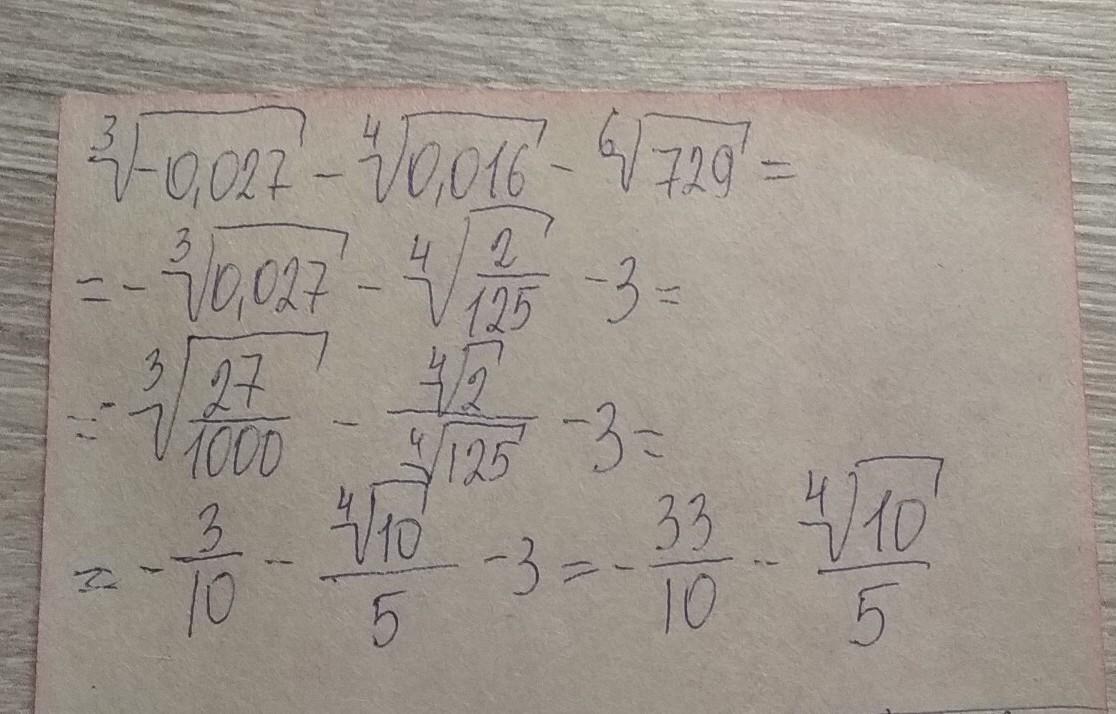 ∛-0,027 - ∜0,016 - ⁶√729 =
= - ∛0,027 - ∜(2/125) - 3 =
= ∛(27/1000) - ∜2/∜125 - 3 =
= - 3/10 - ∜10/5 - 3 = - 33/10 - ∜10/5